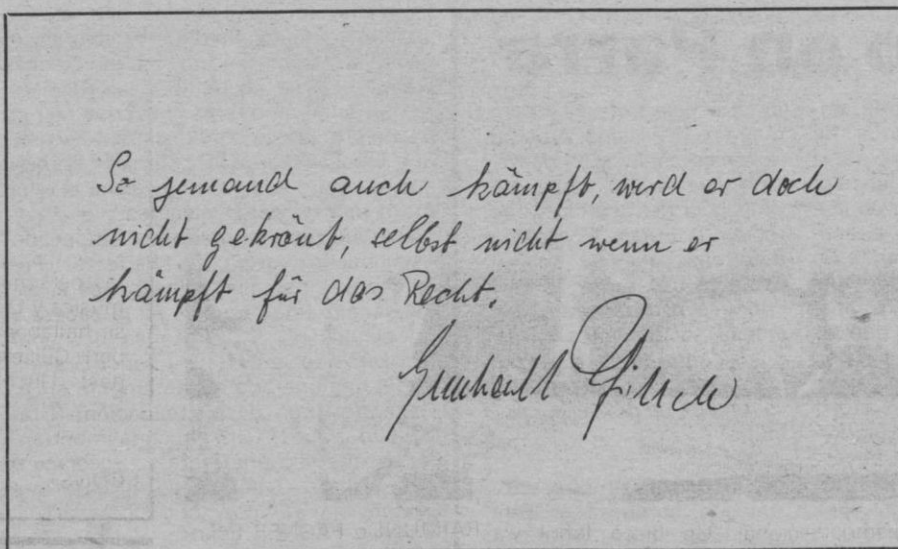 So jemand auch kämpft, wird er doch
nicht gekrönt, selbst nicht wenn er
kämpft für das Recht.